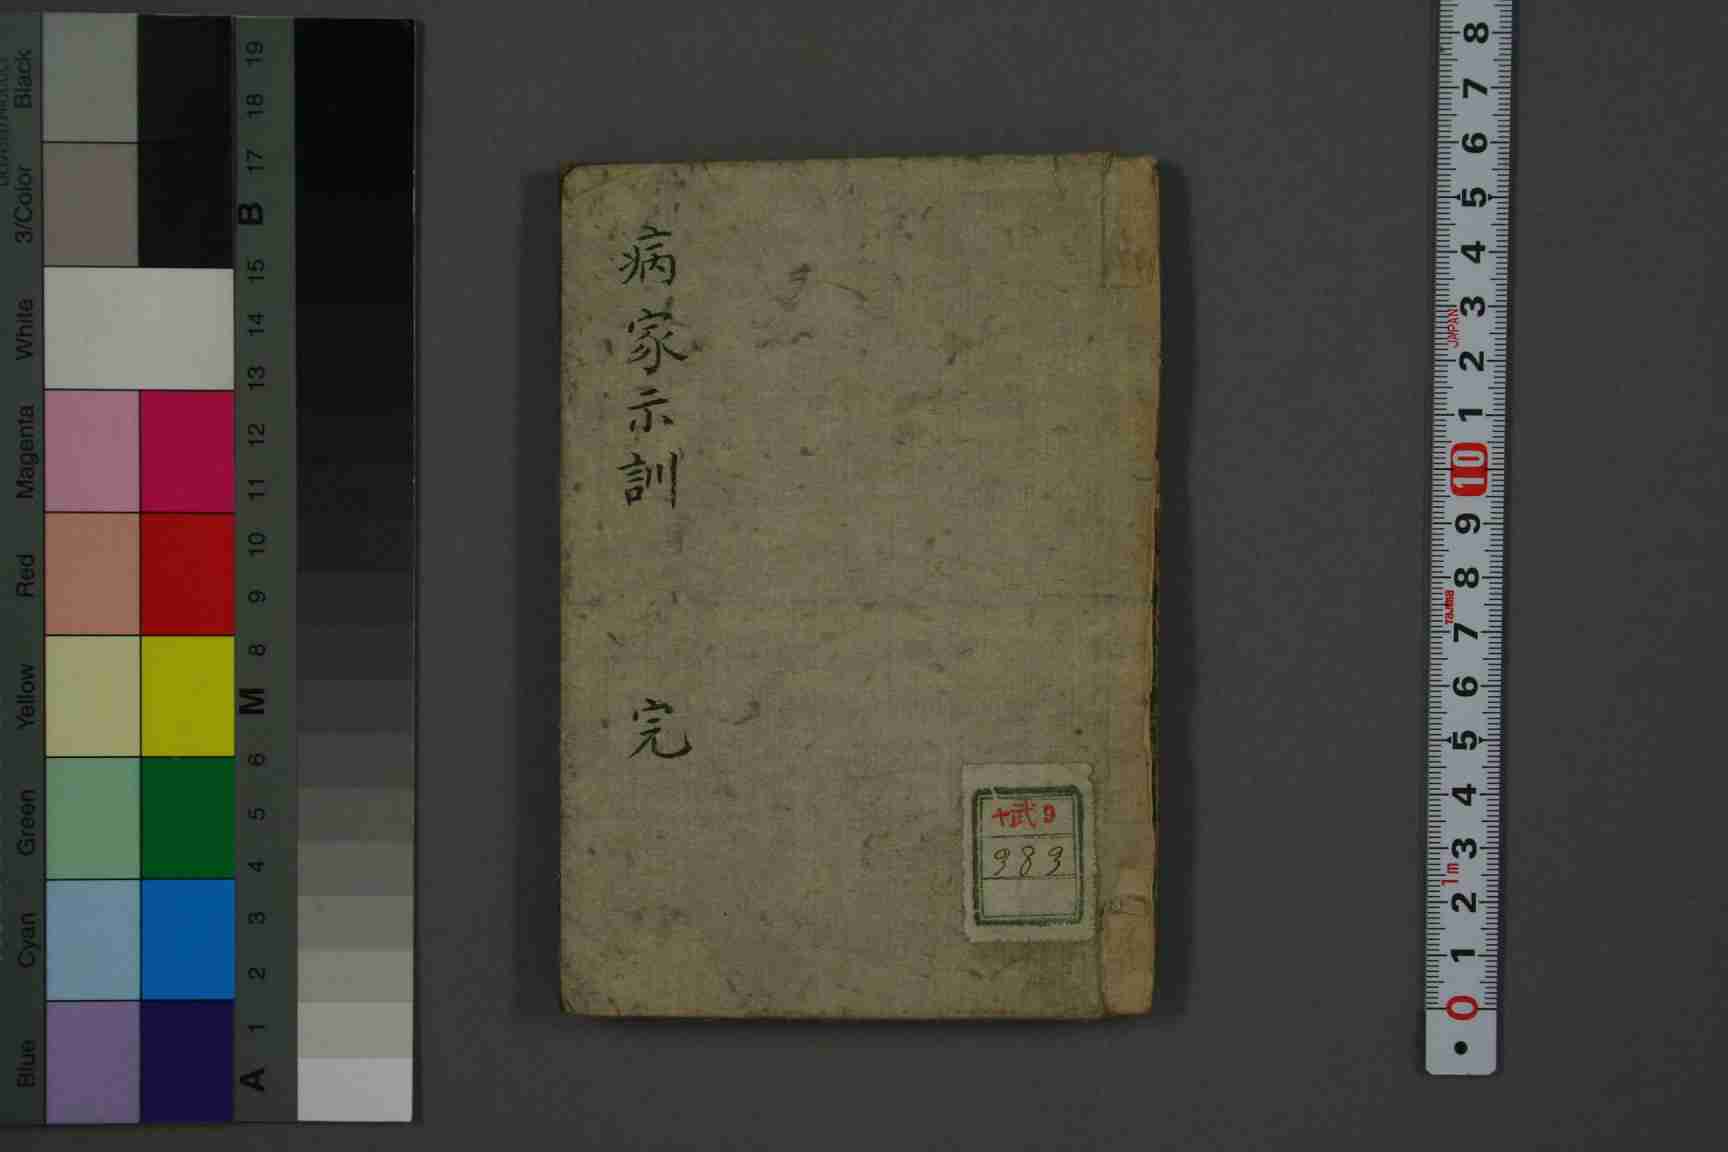 病家示訓
完
+武9
983
Black
3/Color
White
Magenta
Red
Yellow
Green
Cyan
Blue
19
18
17
B
15
14
13
12
11
10
9
8
M
6
5
4
3
2
1
A
8
7
6
5
4
3
JAPAN
2
1
10
9
8
tajima
7
6
5
4
3
1m
2
1
0